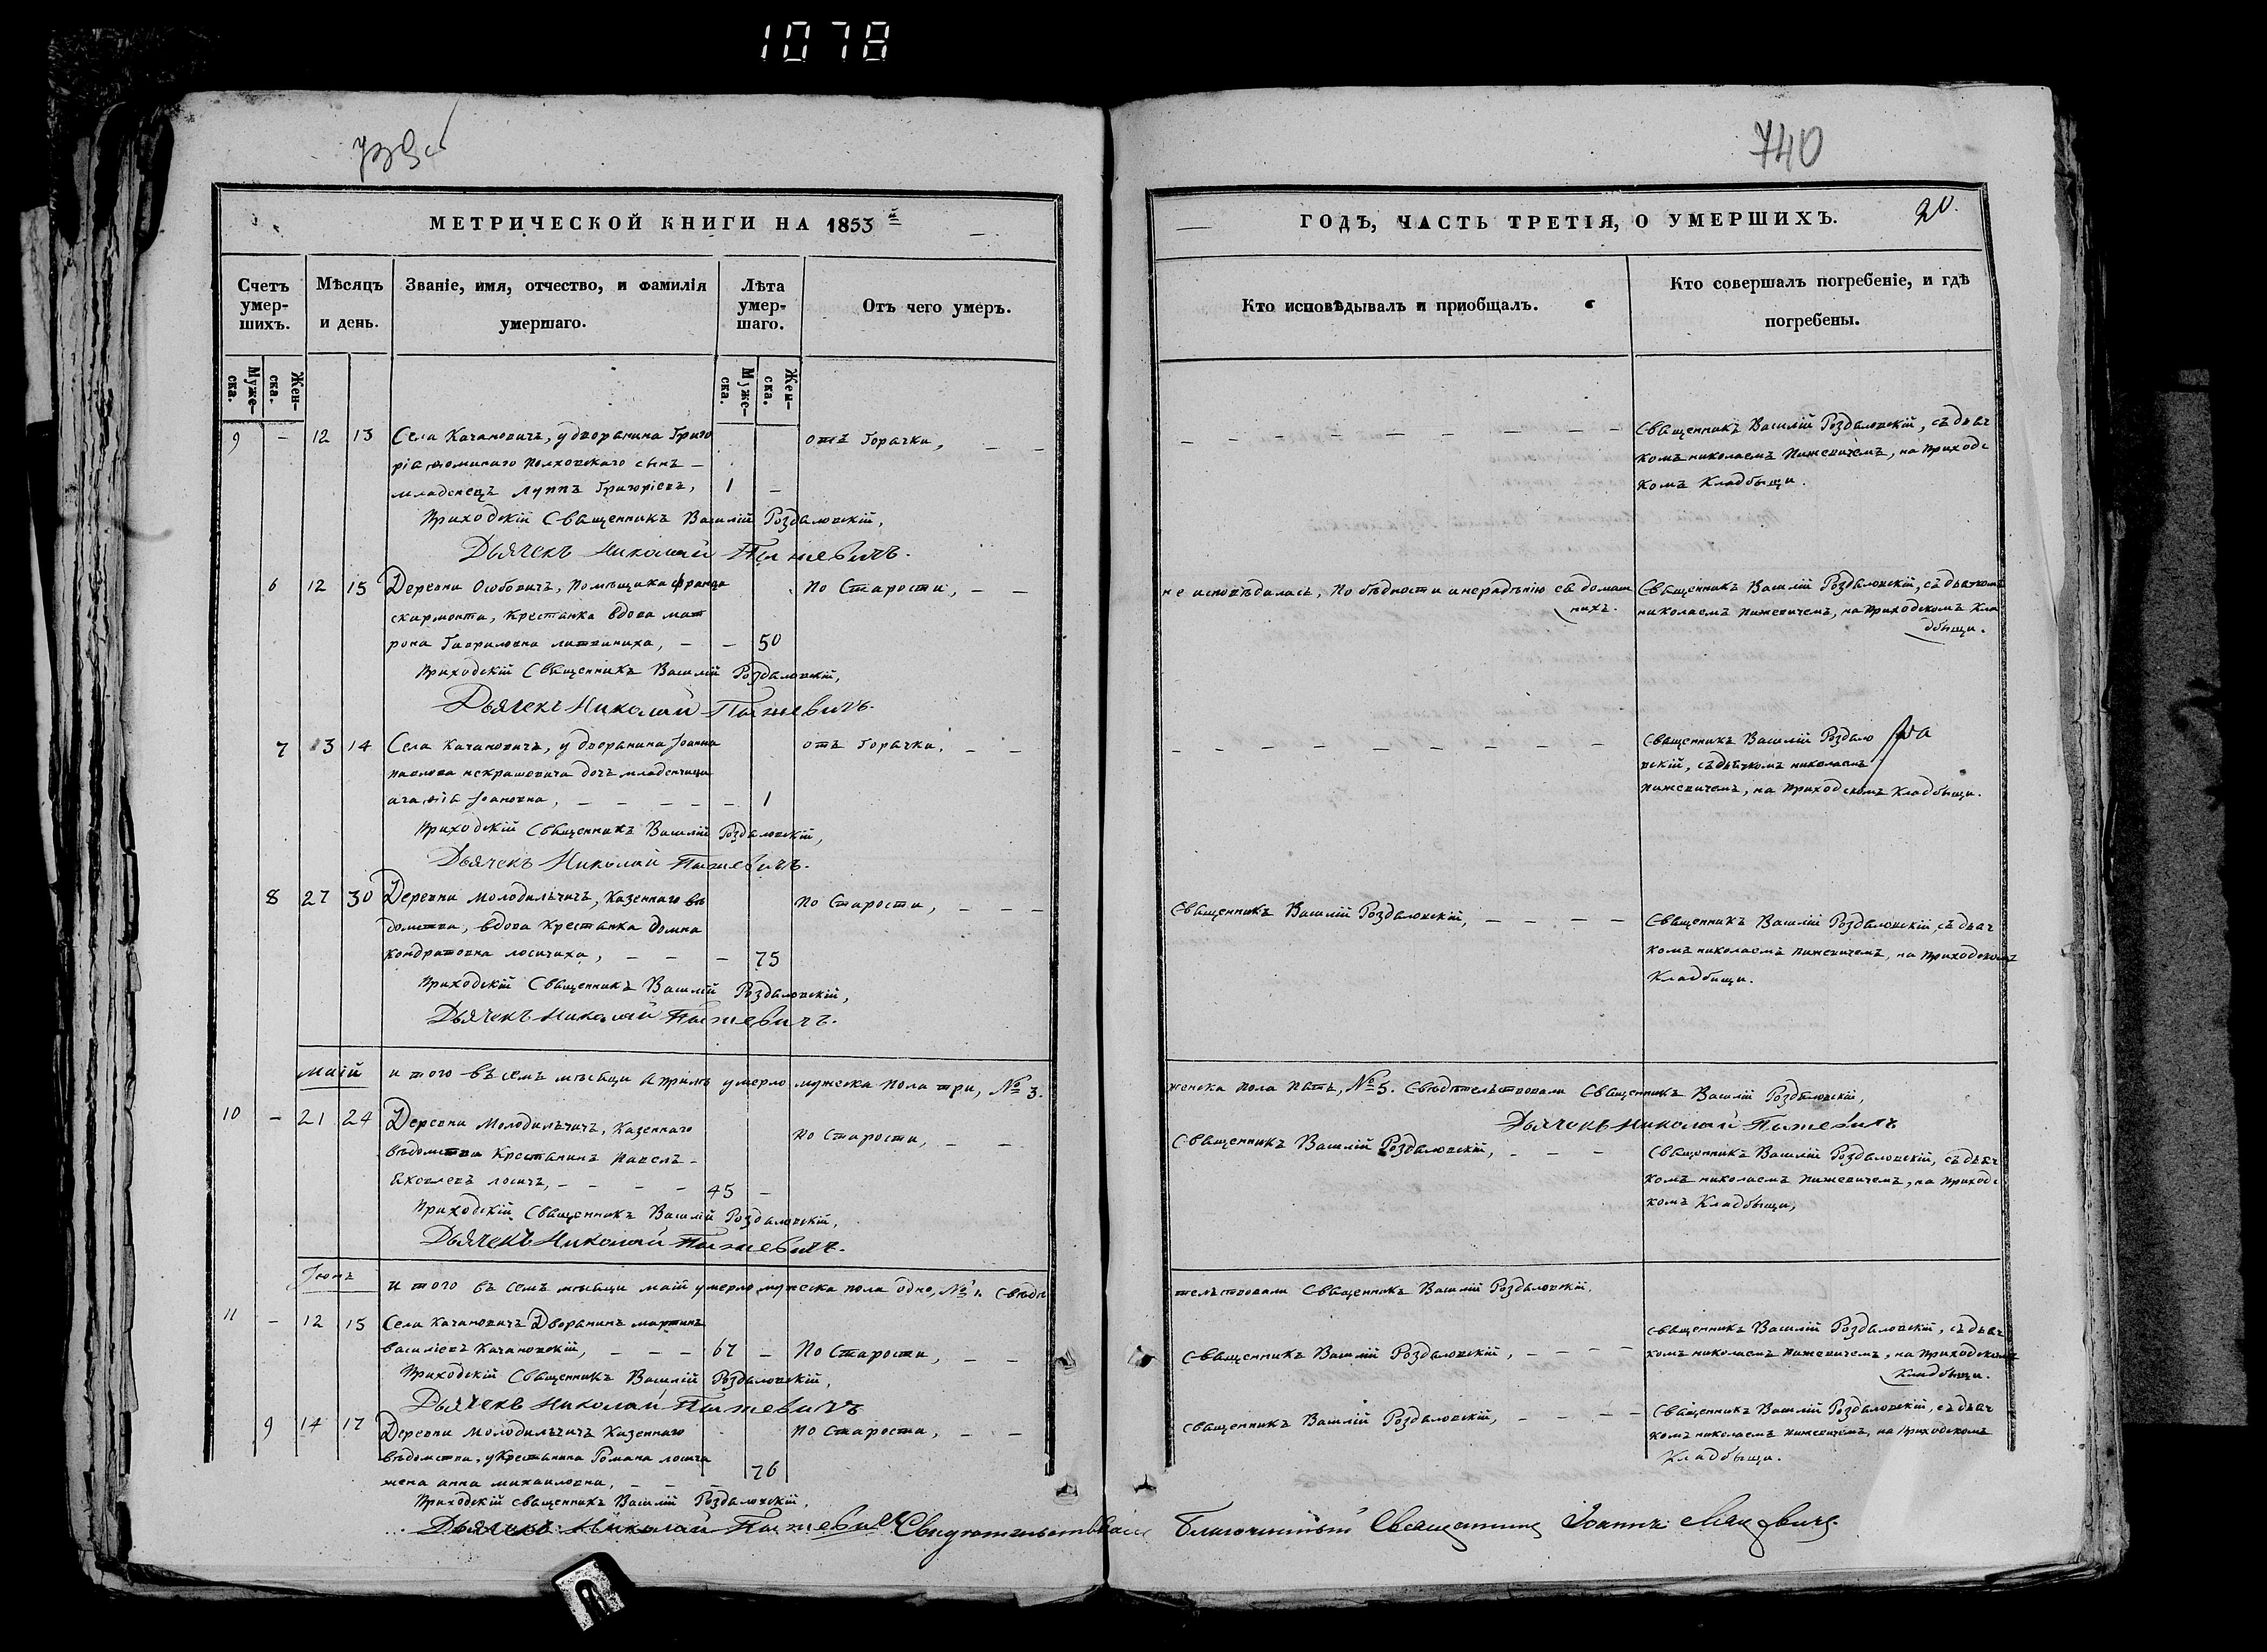 1078
740
МЕТРИЧЕСКОЙ КНИГИ НА 1853й
ГОДЪ, ЧАСТЬ ТРЕТІЯ, О УМЕРШИХЪ.
20.
Счетъ умер-
шихъ.
Мѣсяцъ
и день.
Званіе, имя, отчество, и фамилія
умершаго.
Лѣта
умер-
шаго.
Отъ чего умеръ.
Кто исповѣдывалъ и пріобщалъ.
Кто совершалъ погребеніе, и гдѣ
погребены.
Муже-
ска.
Жен-
ска.
Муже-
ска.
Жен-
ска.
9 – 12 13 Села Качановичъ, у дворанина Григо отъ Горачки, – –
рія Полховскаго сынъ –
младенецъ Луппъ Григоріевъ, 1 –
Приходскій Священникъ Василій Роздаловскій,
Дьячекъ Николай Пыжевичъ.
– – – – – – – – – –
Священникъ Василій Роздаловскій, съ дьяч
комъ николаемъ Пыжевичемъ, на приходс
комъ Кладбыщи.
6 12 15 Деревни Особовичъ, помѣщика Франца По Старости, – –
скирмонта, крестянка вдова мат
рона Гавриловна литвиниха, – – 50
Приходскій Священникъ Василій Роздаловскій,
Дьячекъ Николай Пыжевичъ.
не исповѣдалась, по бѣдности и нерадѣнію ея домаш
нихъ.
Священникъ Василій Роздаловскій, съ дьячкомъ
николаемъ пыжевичемъ, на приходскомъ Кла
дбыщи.
7 13 14 Села Качановичъ, у дворанина Іоанна отъ Горачки, – –
павлова некрашевича дочъ младенчица
Іоановна, – – – – – 1
Приходскій Священникъ Василій Роздаловскій,
Дьячекъ Николай Пыжевичъ.
– – – – – – – – – –
Священникъ Василій Роздало
вскій, съ дьячкомъ николаемъ
пыжевичемъ, на приходскомъ Кладбыщи.
8 27 30 Деревни молодильчичъ, казеннаго вѣ По Старости, – – –
домства, вдова крестянка домна
кондратовна лосичиха, – – – 75
Приходскій Священникъ Василій Роздаловскій,
Дьячекъ Николай Пыжевичъ.
Священникъ Василій Роздаловскій, – – – –
Священникъ Василій Роздаловскій, съ дьяч
комъ николаемъ пыжевичемъ, на приходскомъ
Кладбищи.
Маій и того въ семъ мѣсяци Априлѣ умерло мужеска пола три, № 3.
женска пола пять, № 5. Свидѣтельствовали Священникъ Василій Роздаловскій,
Дьячекъ Николай Пыжевичъ
10 – 21 24 Деревни Молодильчичъ, казеннаго По Старости, – –
вѣдомства Крестянинъ павелъ –
Яковлевъ лосичъ, – – – – 45 –
Приходскій Священникъ Василій Роздаловскій,
Дьячекъ Николай Пыжевичъ.
Священникъ Василій Роздаловскій, – – –
Священникъ Василій Роздаловскій, съ дьяч
комъ николаемъ пыжевичемъ, на приходс
комъ Кладбыщи,
Іюнъ И того въ семъ мѣсяци маій умерло мужеска пола одно, № 1. Свидѣ
тельствовали Священникъ Василій Роздаловскій.
11 – 12 15 Села Качановичъ Дворанинъ мартинъ
василіевъ Качановскій, – – – 67 – По Старости, – –
Приходскій Священникъ Василій Роздаловскій,
Дьячекъ Николай Пыжевичъ
Священникъ Василій Роздаловскій, – – – –
Священникъ Василій Роздаловскій, съ дьяч
комъ николаемъ пыжевичемъ, на приходскомъ
Кладбыщи.
9 14 17 Деревни Молодильчичъ Казеннаго По Старости, – –
вѣдомства, у Крестянина Романа лосича
жена анна михаиловна, – – – 76
Приходскій священникъ Василій Роздаловскій,
Дьячекъ Николай Пыжевичъ
Священникъ Василій Роздаловскій, – – – –
Священникъ Василій Роздаловскій, съ дьяч
комъ николаемъ пыжевичемъ, на приходскомъ
Кладбыщи.
Свидѣтельствовалъ Благочинный Священникъ Іоаннъ